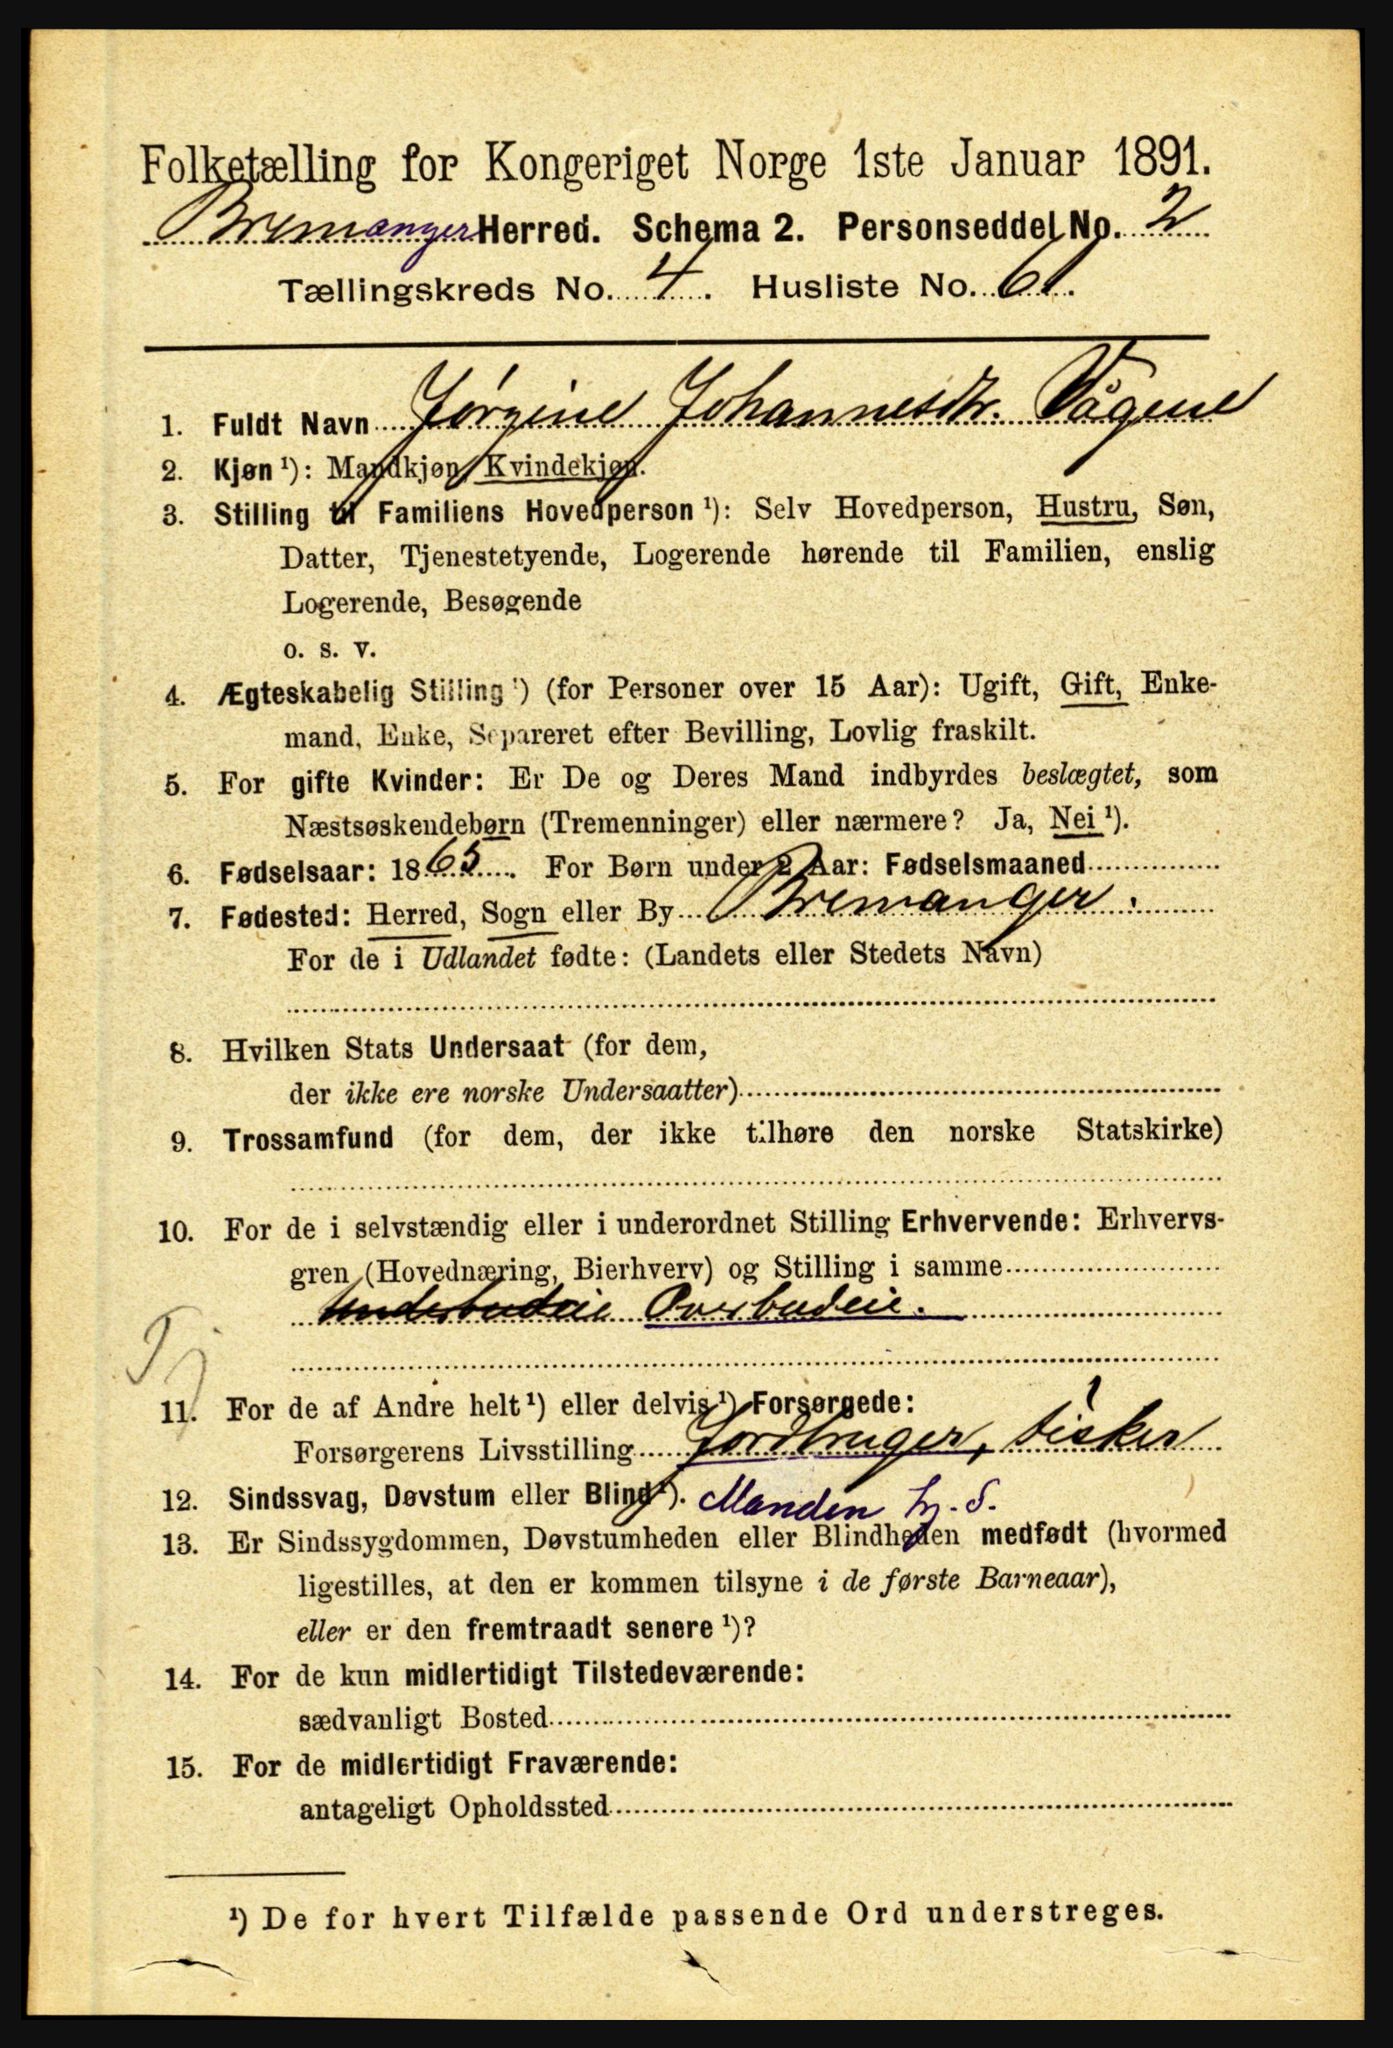 Folketælling for Kongeriget Norge 1ste Januar 1891.
Bremanger Herred. Schema 2. Personseddel No. 2
Tællingskreds No. 4. Husliste No. 61.
1. Fuldt Navn Jørgine Johannesdtr. Vågene
2. Kjøn ¹): Mandkjøn, Kvindekjøn.
3. Stilling til Familiens Hovedperson ¹): Selv Hovedperson, Hustru, Søn,
Datter, Tjenestetyende, Logerende hørende til Familien, enslig
Logerende, Besøgende
o. s. v.
4. Ægteskabelig Stilling ¹) (for Personer over 15 Aar): Ugift, Gift, Enke-
mand, Enke, Separeret efter Bevilling, Lovlig fraskilt.
5. For gifte Kvinder: Er De og Deres Mand indbyrdes beslægtet, som
Næstsøskendebørn (Tremenninger) eller nærmere? Ja, Nei ¹).
6. Fødselsaar: 1865. For Børn under 2 Aar: Fødselsmaaned
7. Fødested: Herred, Sogn eller By Bremanger.
For de i Udlandet fødte: (Landets eller Stedets Navn)
8. Hvilken Stats Undersaat (for dem,
der ikke ere norske Undersaatter)
9. Trossamfund (for dem, der ikke tilhøre den norske Statskirke)
10. For de i selvstændig eller i underordnet Stilling Erhvervende: Erhvervs-
gren (Hovednæring, Bierhverv) og Stilling i samme
Underbudeie Overbudeie.
Tj
11. For de af Andre helt ¹) eller delvis ¹) Forsørgede:
Forsørgerens Livsstilling Jordbruger, fisker
12. Sindssvag, Døvstum eller Blind ¹). Manden
13. Er Sindssygdommen, Døvstumheden eller Blindheden medfødt (hvormed
ligestilles, at den er kommen tilsyne i de første Barneaar),
eller er den fremtraadt senere ¹)?
14. For de kun midlertidigt Tilstedeværende:
sædvanligt Bosted
15. For de midlertidigt Fraværende:
antageligt Opholdssted
¹) De for hvert Tilfælde passende Ord understreges.